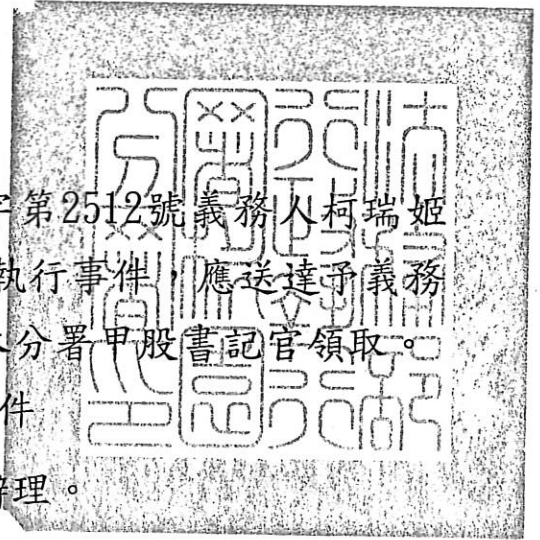 字第2512號義務人柯瑞姬
執行事件,應送達予義務
本分署甲股書記官領取。
件
辦理。